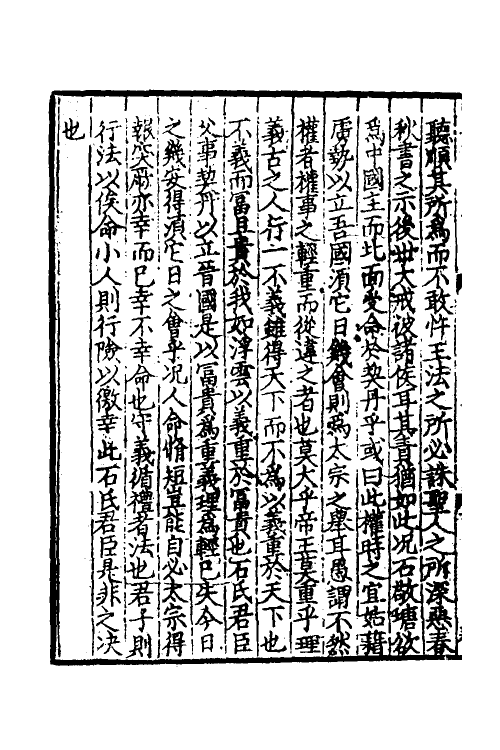 聽順其所為而不敢忤王法之所必誅聖人之所深惡春
秋書之示後世大戒彼諸侯耳其責猶如此况石敬瑭欲
為中國主而北面受命於契丹乎或曰此權時之宜姑藉
虜勢以立吾國須它日幾會則為太宗之舉耳愚謂不然
權者權事之輕重而從違之者也莫大乎帝王莫重乎理
義古之人行一不義雖得天下而不為以義重於天下也
不義而冨且貴於我如浮雲以義重於冨貴也石氏君臣
父事契丹以立晉國是以冨貴為重義理為輕已失今日
之幾安得須它日之會乎况人命脩短豈能自必太宗得
報突厥亦幸而已幸不幸命也守義循禮者法也君子則
行法以俟命小人則行險以徼幸此石氏君臣是非之决
也